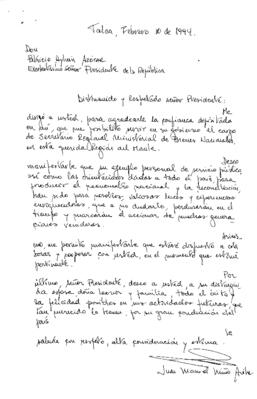 Talca, Febrero 10 de 1994.
Don
Patricio Aylwin Azócar
Excelentísimo Señor Presidente de la República
Distinguido y Respetado Señor Presidente:
Me
dirijo a usted, para agradecerle la confianza depositada
en mí, que me posibilitó servir en su gobierno el cargo
de Secretario Regional Ministerial de Bienes Nacionales,
en esta querida Región del Maule.
Deseo
manifestarle que su ejemplo personal de servicio público,
así como las orientaciones dadas a todo el país para
producir el reencuentro nacional y la reconciliación,
han sido para nosotros, valiosas luces y experiencias
enriquecedoras que a no dudarlo, perdurarán en el
tiempo y marcarán el accionar de muchas genera
ciones venideras.
mo, me permito manifestarle que estaré dispuesto a cola
borar y cooperar con usted, en el momento que estime
pertinente.
Por
último, señor Presidente, deseo a usted, a su distingui
da esposa doña Leonor y familia, todo el éxito y
la felicidad posibles en sus actividades futuras, que
tan merecido lo tienen, por su gran conducción del
país
Le
saluda con respeto, alta consideración y estima.
Juan Manuel